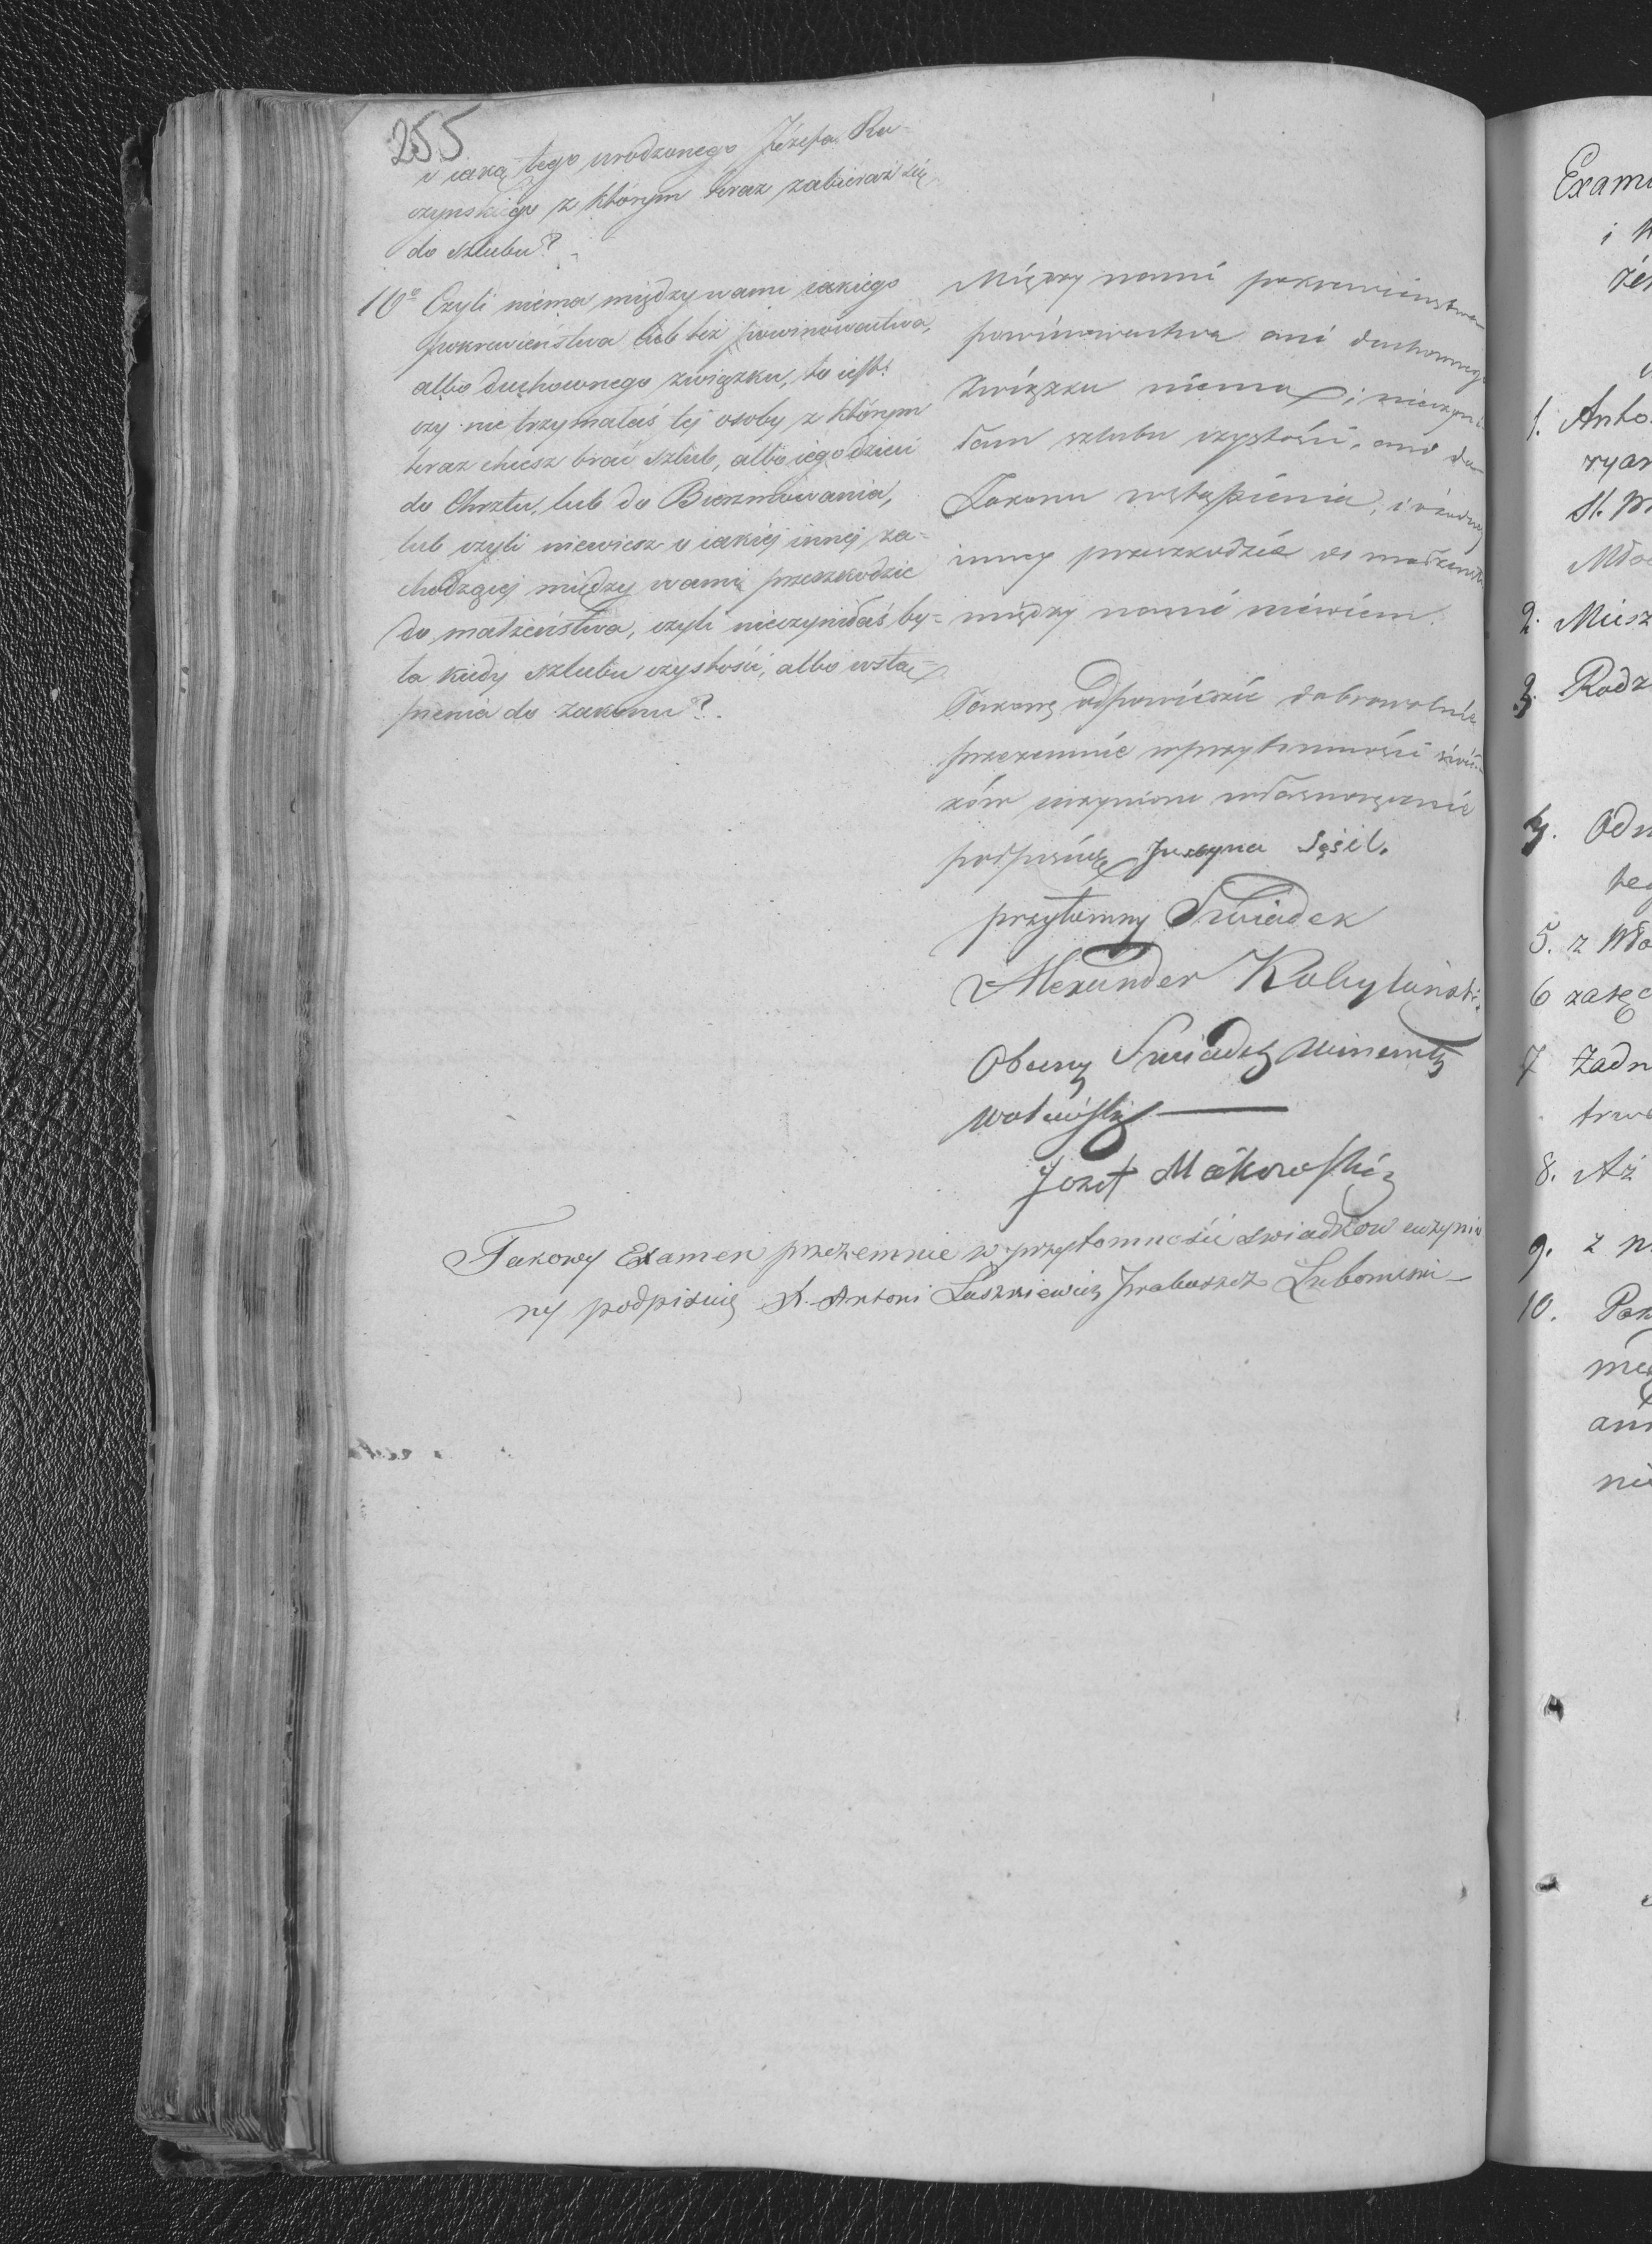 255
i iaką tego urodzonego Józefa Ru=
czynskiego z którym teraz zabierasz się
do szlubu?
10º Czyli niema między wami iakiego
pokrewieństwa lub też powinowactwa,
albo duchownego związku, to iest:
czy nie trzymałaś tej osoby z którym
teraz chcesz brać szlub, albo iego dzieci
do Chrztu, lub do Bierzmowania,
lub czyli niewiesz o iakiéj innéj za=
chodzącéj między wami przeszkodzie
do małzeństwa, czyli nieczyniłaś by=
ła kiedy szlubu czystości, albo wstą=
pienia do zakonu?
Między nami pokrewieństwa
powinowactwa ani duchownego
Związku niema, i nieczyni
łam szlubu czystości, ani do
Zakonu wstąpienia, i o żadnej
innej przeszkodzie do małzeństwa
między nami niewiem.
Takowe odpowiedzie dobrowolnie
przezemnie w przytomności świad
ków uczynione własnoręcznie
podpisuię Justyna Sęsil.
przytomny Swiadek
Alexander Kobyliński.
Obecny Swiadek Wincenty
Józef Makowski
Takowy Examen przezemnie w przytomności swiadkow uczynio
ny podpisuię X. Antoni Laszkiewicz Proboszcz Lubomirski
Exami
i
1. Anto
ryan
St.
2. Miesz
3. Rodz
4. Odn
teg
5. z Wło
6 zaręc
7 Żadn
trwa
8. Aż
9. z
10. Pok
mię
ani
nie